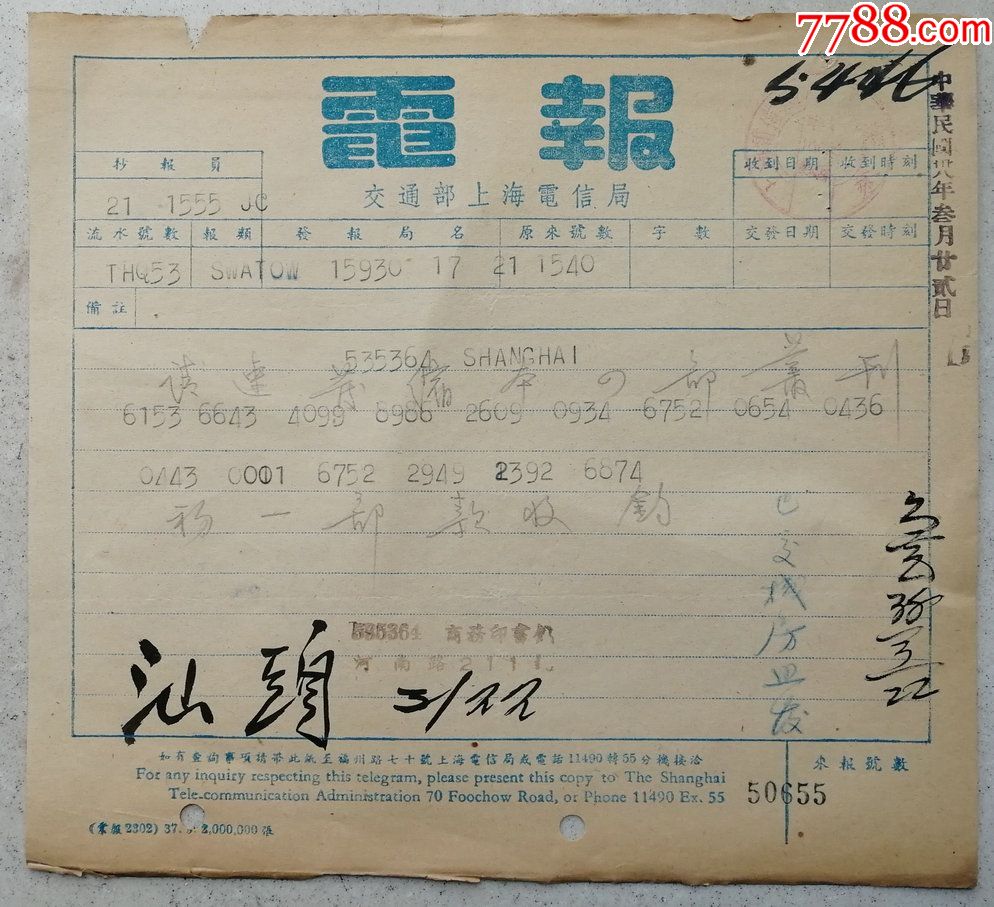 7788.com
5.4
中華民國卅八年叁月廿貳日
電報
交通部上海電信局
抄報員
收到日期 收到時刻
21 1555 JC
流水號數 報類 發報局名 原來號數 字數 交發日期 交發時刻
THQ53 SWATOW 15930 17 21 1540
備註
535364 SHANGHAI
請速 儲本 部叢刊
6153 6643 4099 8986 2609 0934 6752 0654 0436
0443 0001 6752 2949 2392 6874
初一部款收
已交棧房
535364 商務印書館
河南路211
汕頭 3/22
如有查詢事項攜帶此紙至福州路七十號上海電信局或電話11490轉55分機接洽
For any inquiry respecting this telegram, please present this copy to The Shanghai
Tele-communication Administration 70 Foochow Road, or Phone 11490 Ex. 55
來報號數
50655
(業報2302) 37. 2,000,000張